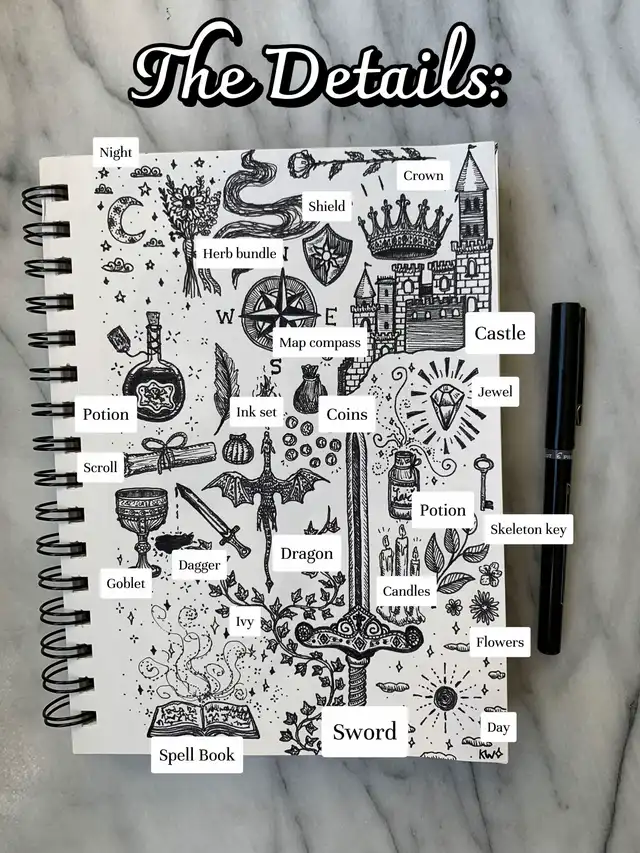 The Details:
Night
Crown
Shield
Herb bundle
W
E
Map compass
Castle
S
Jewel
Potion
Ink set
Coins
Scroll
Potion
Skeleton key
Dragon
Dagger
Goblet
Candles
Ivy
Flowers
Sword
Day
Spell Book
KW